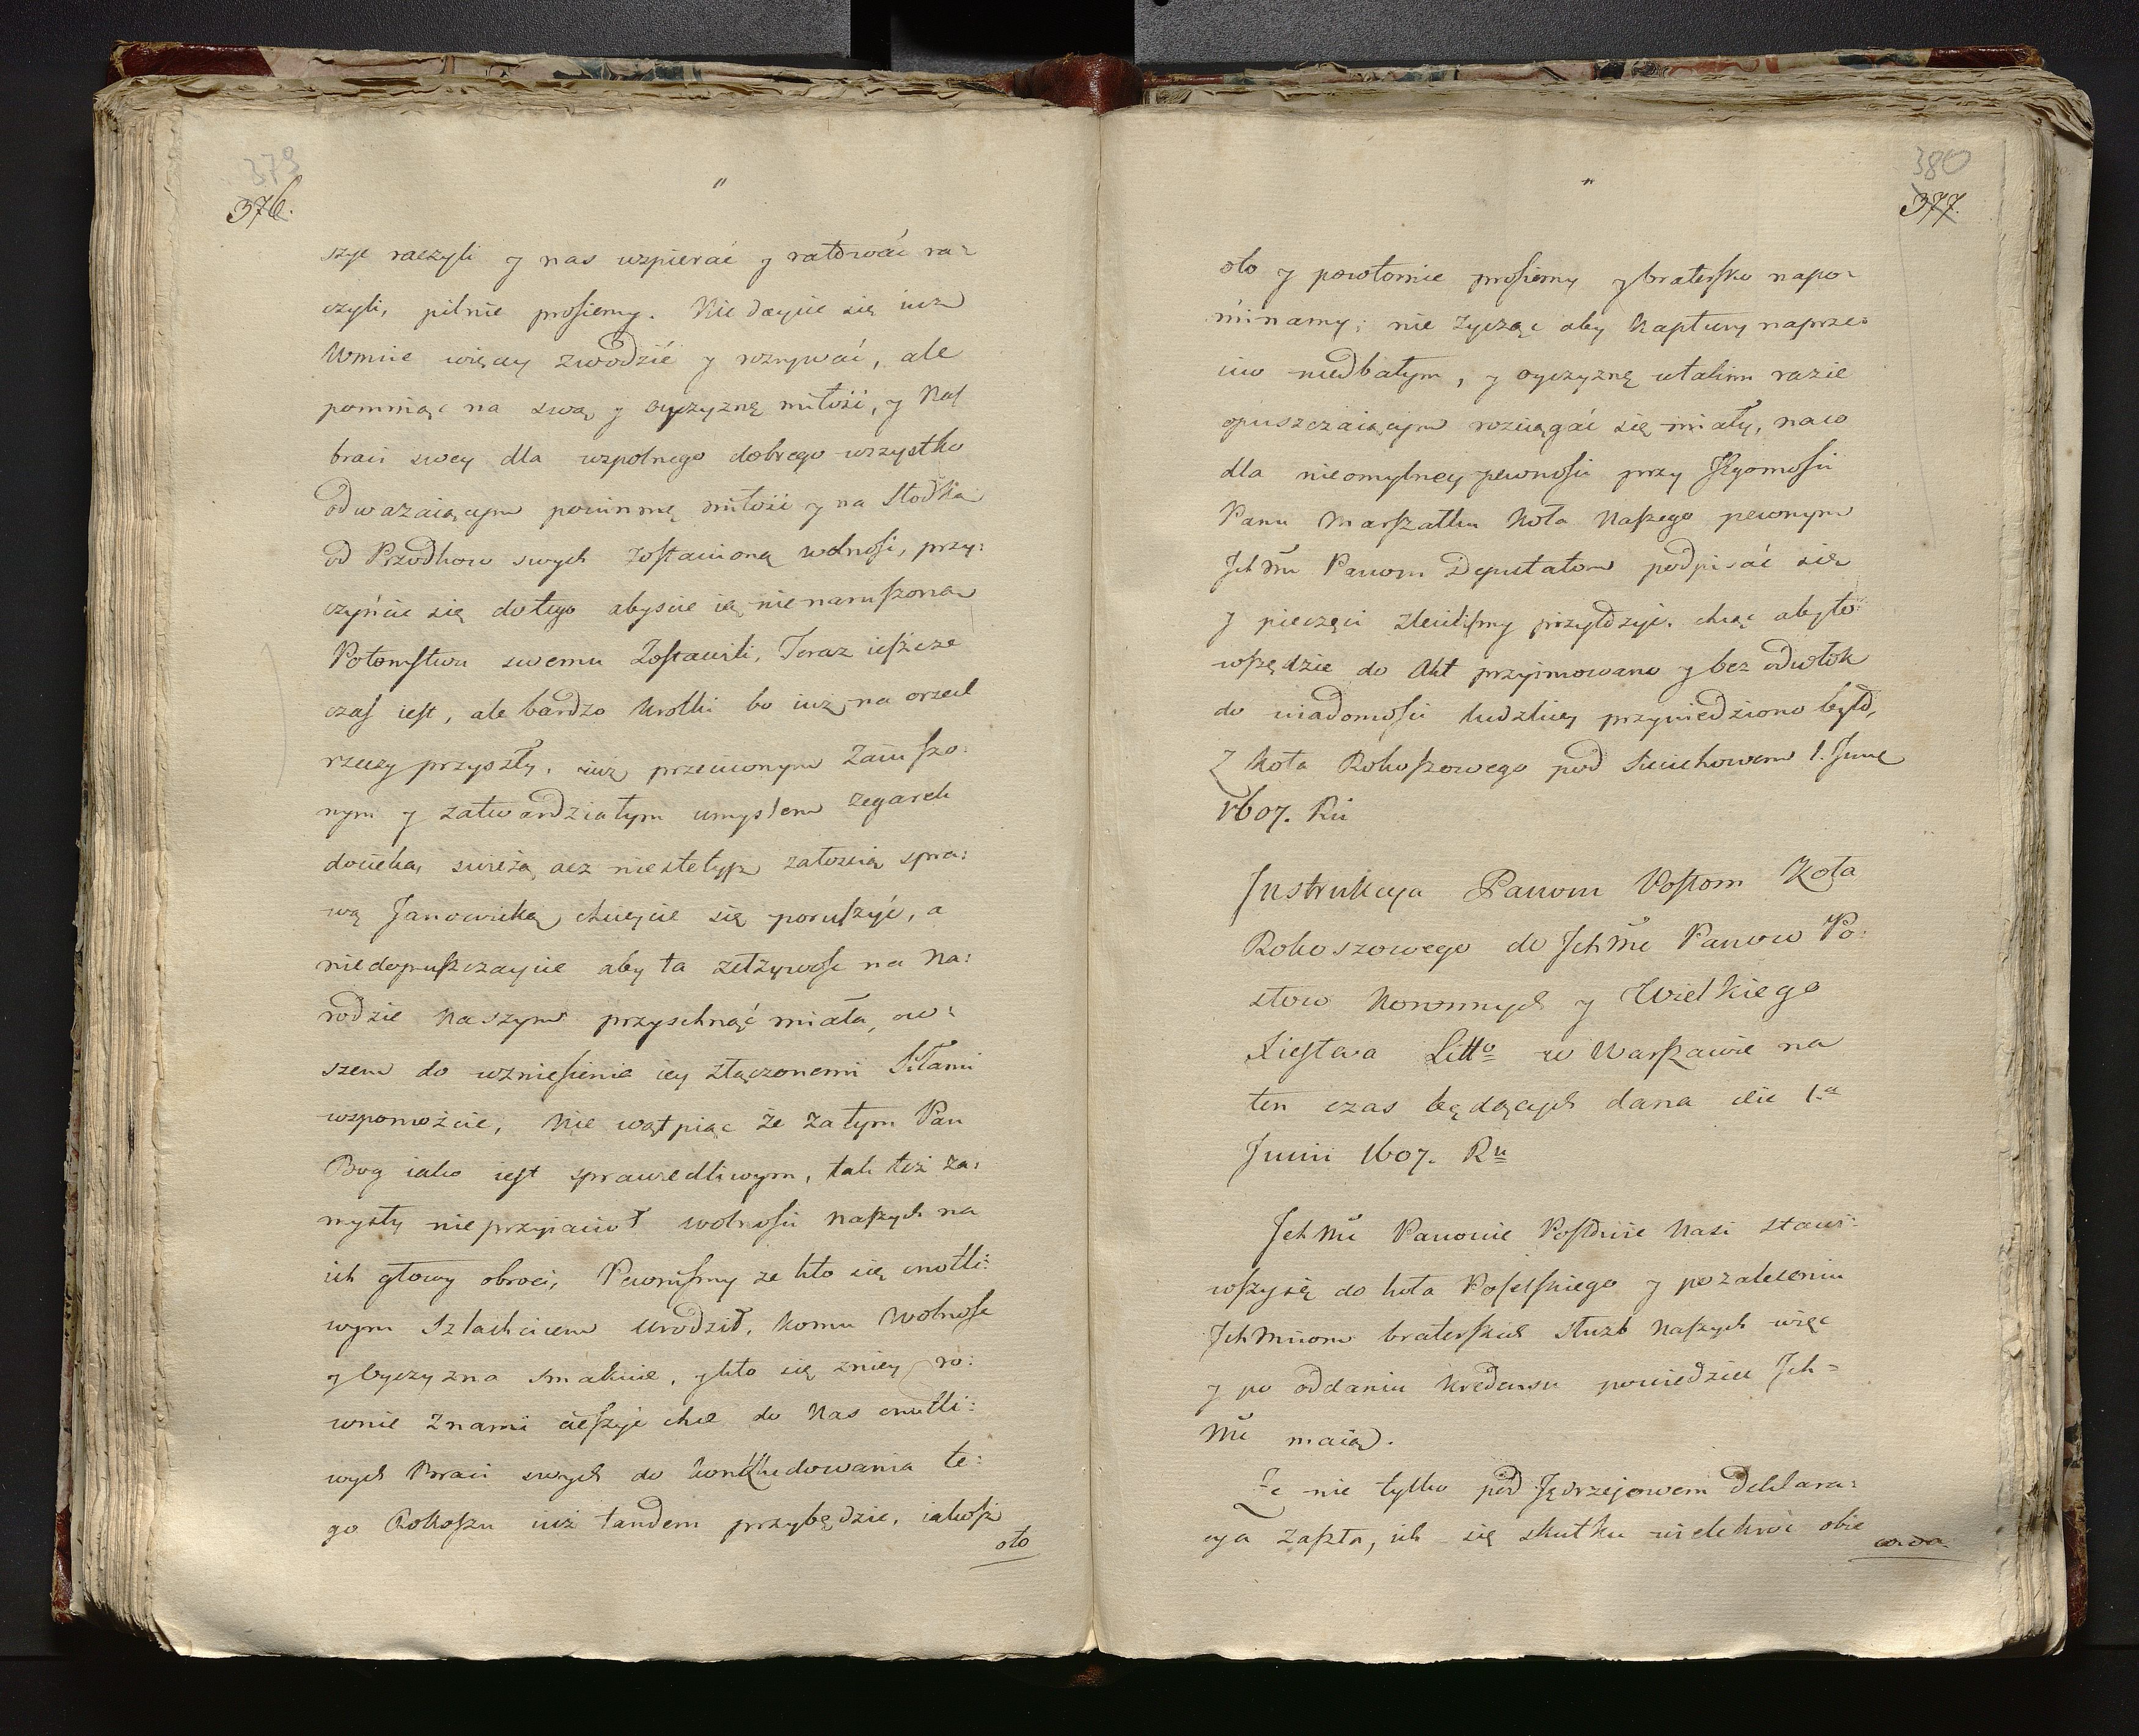 379
376.
"
szyć raczyli y nas wspierać y ratować ra-
czyli, pilnie prosiemy. Nie daycie się iuż
WMcie więcey zwodzić y rozrywać, ale
pomniąc na swą y oyczyznę miłość, y Nas
braci swey dla wspolnego dobrego wszystko
odważaiącym powinną miłość y na Słodką
od Przodkow swych zostawioną wolność, przy:
czyńcie się do tego abyscie ią nienaruszoną
Potomstwu swemu Zostawili, Teraz ieszcze
czas iest, ale bardzo krotki bo iuż na orzech
rzeczy przyszły, iuż przeciwnym Zaiuszo:
nym y zatwardziałym umysłem zegarek
docieka, swieżą acz niestetysz załosną spra:
wą Janowicką chcieycie się poruszyć, a
niedopuszczaycie aby ta zelżywość na Na:
rodzie Naszym przyschnąć miała, ow:
szem do wzniesienia iey złączonemi Siłami
wspomożcie, Nie wątpiąc że za tym Pan
Bog iako iest sprawiedliwym, tak też za:
mysły nieprzyiacioł wolności Naszych na
ich głowy obroci, Pewnismy ze kto się cnotli:
wym Szlachcicem urodził, komu Wolność
y Oyczyzna smakuie, y kto się z niey ro:
wnie z nami cieszyć chce do Nas cnotli:
wych Braci swych do konkludowania te:
go Rokoszu iuż tandem przybędzie, iakosz
oto
380
377.
"
oto y powtornie prosiemy y bratersko napo:
minamy, nie życząc aby Kaptury naprze:
ciw niedbałym, y oyczyznę w takim razie
opuszczaiącym rozciągać się miały, na co
dla nieomylney pewności przy JEgomości
Panu Marszałku Koła Naszego pewnym
Ich Mm Panom Deputatom podpisać się
y pieczęci zleciliśmy przyłożyć, chcąc aby to
wszędzie do Akt przyimowano y bez odwłok
do wiadomości ludzkiey przywiedziono było,
Z Koła Rokoszowego pod 1. Junij
1607. Ru
Instrukcya Panom Posłom Koła
Rokoszowego do Ich Mci Panow Po:
słow Koronnych y Wielkiego
Xięstwa Litto w Warszawie na
ten czas będących dana die 1.a
Junii 1607. Ru
Ich Mć Panowie Posłowie Nasi stawi:
wszy się do koła Poselskiego y po zaleceniu
Ich Mciom braterskich służb Naszych więc
y po oddaniu kredensu powiedzieć Ich-
Mć maią.
Ze nie tylko pod Jędrzejowem deklara:
cya zaszła, ich się skutku wielekroć obie